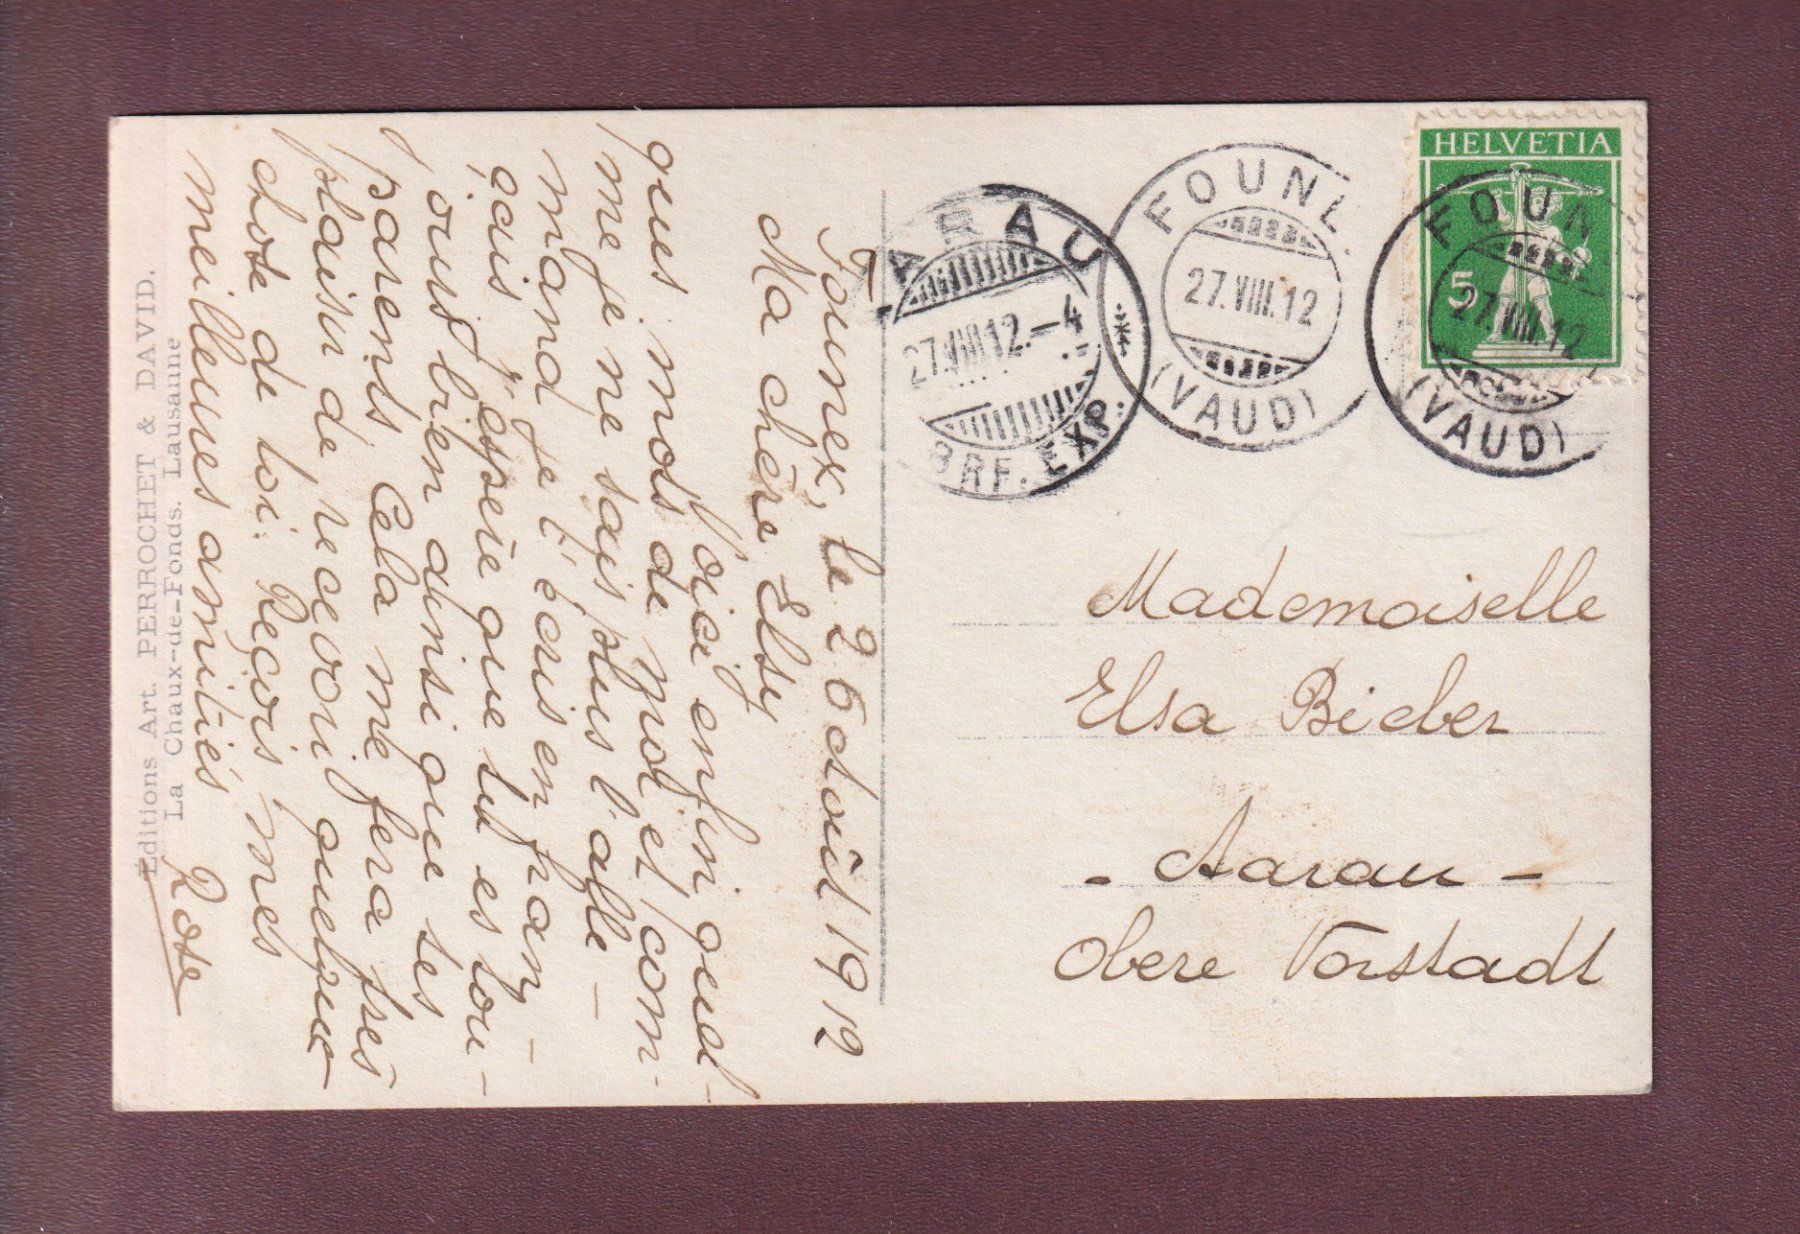 Founex, le 26 août 1912
Ma chère Elsy
Voici enfin quel-
ques mots de moi et com-
me je ne sais plus l'alle-
mand je t'écris en fran-
çais J'espère que tu es tou-
jours bien ainsi que tes
parents Cela me fera très
plaisir de recevoir quelque
chose de toi. Reçois mes
meilleures amitiés Rose
Éditions Art. PERROCHET & DAVID.
La Chaux-de-Fonds. Lausanne
AARAU
27.VIII.12.-4
BRF. EXP.
FOUNE
27.VIII.12
(VAUD)
HELVETIA
5
FOUN
27.VIII.12
(VAUD)
Mademoiselle
Elsa Bieber
- Aarau -
Obere Vorstadt